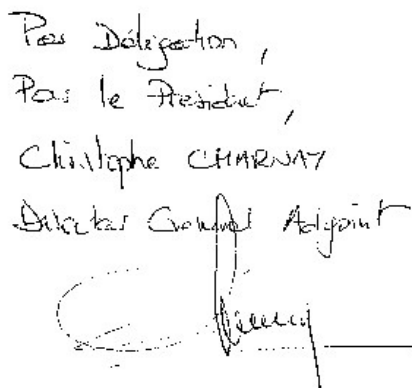 Par Délégation,
Par le Président,
Christophe CHARNAY
Directeur Général Adjoint